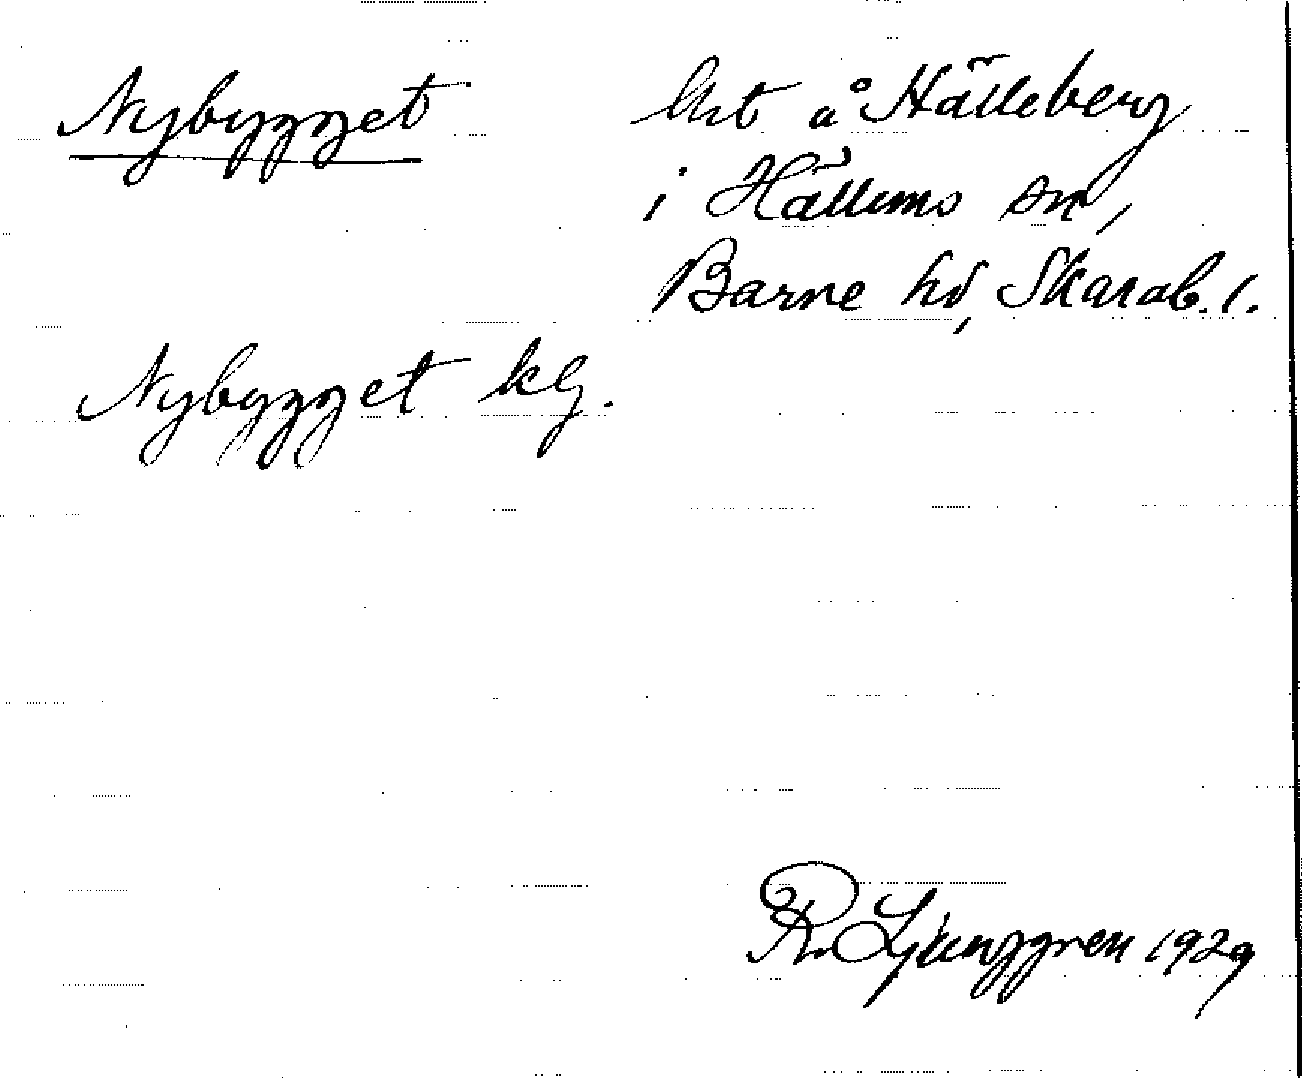 Nybygget
Urt å Hälleberg
i Hällums sn,
Barne hd, Skarab. l.
Nybygget kg.
R. Ljunggren 1929